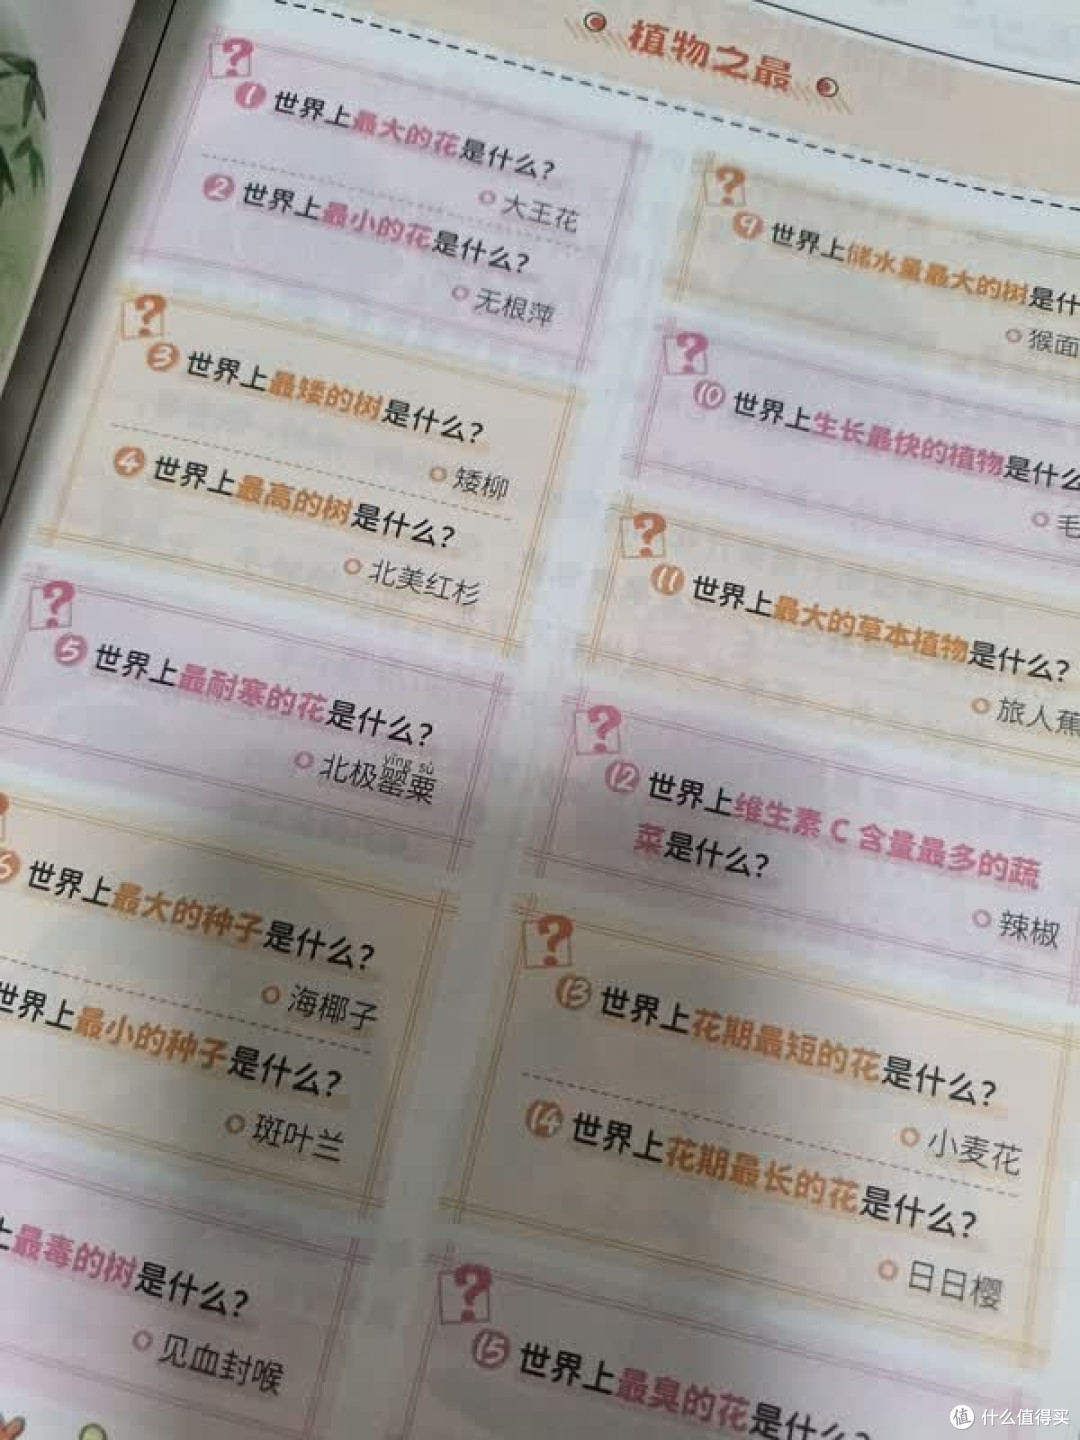 植物之最
1 世界上最大的花是什么?
大王花
2 世界上最小的花是什么?
无根萍
3 世界上最矮的树是什么?
矮柳
4 世界上最高的树是什么?
北美红杉
5 世界上最耐寒的花是什么?
yīng sù
北极罂粟
6 世界上最大的种子是什么?
海椰子
世界上最小的种子是什么?
斑叶兰
上最毒的树是什么?
见血封喉
9 世界上储水量最大的树是什
猴面
10 世界上生长最快的植物是什么
毛
11 世界上最大的草本植物是什么?
旅人蕉
12 世界上维生素 C 含量最多的蔬
菜是什么?
辣椒
13 世界上花期最短的花是什么?
小麦花
14 世界上花期最长的花是什么?
日日樱
15 世界上最臭的花是什么?
值 什么值得买